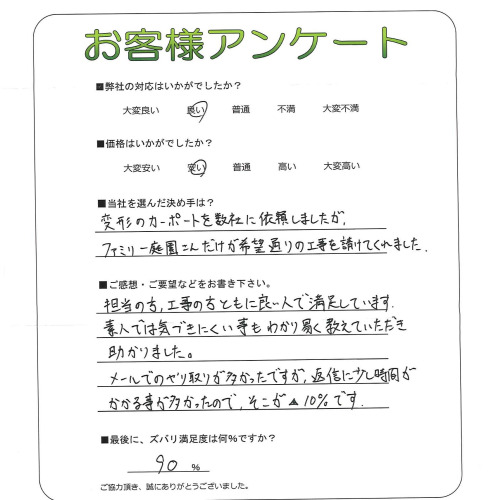 お客様アンケート
■弊社の対応はいかがでしたか？
大変良い 良い 普通 不満 大変不満
■価格はいかがでしたか？
大変安い 安い 普通 高い 大変高い
■当社を選んだ決め手は？
変形のカーポートを数社に依頼しましたが、
ファミリー庭園さんだけが希望通りの工事を請けてくれました.
■ご感想・ご要望などをお書き下さい。
担当の方,工事の方ともに良い人で満足しています.
素人では気づきにくい事もわかり易く教えていただき
助かりました。
メールでのやり取りが多かったですが,返信に少し時間が
かかる事が多かったので,そこが▲10%です.
■最後に、ズバリ満足度は何％ですか？
90 ％
ご協力頂き、誠にありがとうございました。